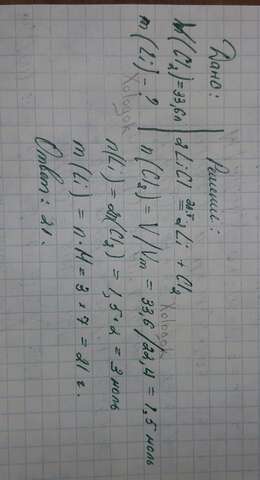 Дано:
V(Cl₂)=33,6л
m(Li)-?
Решение:
2LiCl эл.т = 2Li + Cl₂
n(Cl₂) = V/Vm = 33,6/22,4 = 1,5 моль
n(Li) = 2n(Cl₂) = 1,5·2 = 3 моль
m(Li) = n·M = 3·7 = 21 г.
Ответ: 21.
Холодок
Холодок